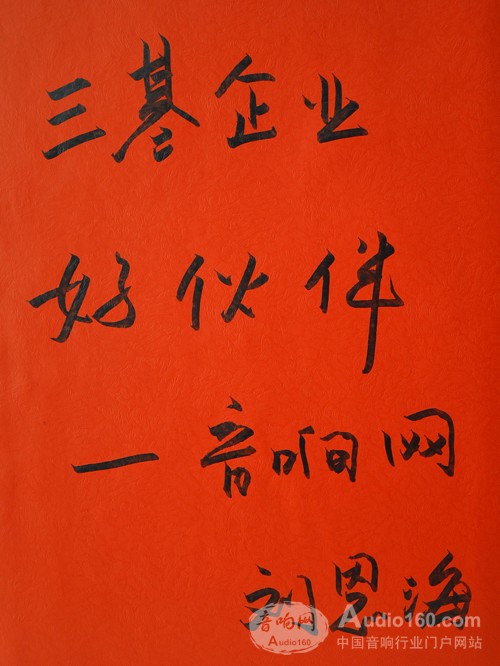 三基企业
好伙伴
一音响网
刘恩海
音响网 Audio160
Audio160.com
中国音响行业门户网站